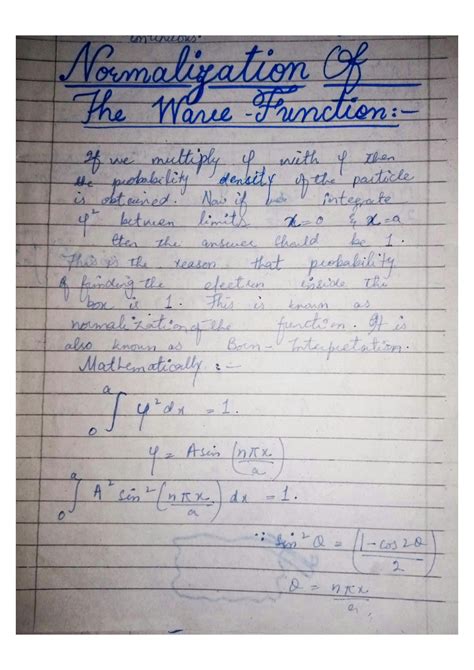 continuous.
Normalization Of
The Wave-Function:-
If we multiply φ with φ then
the probability density of the particle
is obtained. Now if we integrate
φ² between limits x=0 & x=a
then the answer should be 1.
This is the reason that probability
of finding the electron inside the
box is 1. This is known as
normalization of the function. It is
also known as Born-Interpretation.
Mathematically:-
∫₀ᵃ φ²dx = 1.
φ = A sin (nπx/a)
∫₀ᵃ A² sin² (nπx/a) dx = 1.
∵ sin²θ = (1-cos2θ/2)
θ = nπx/a.